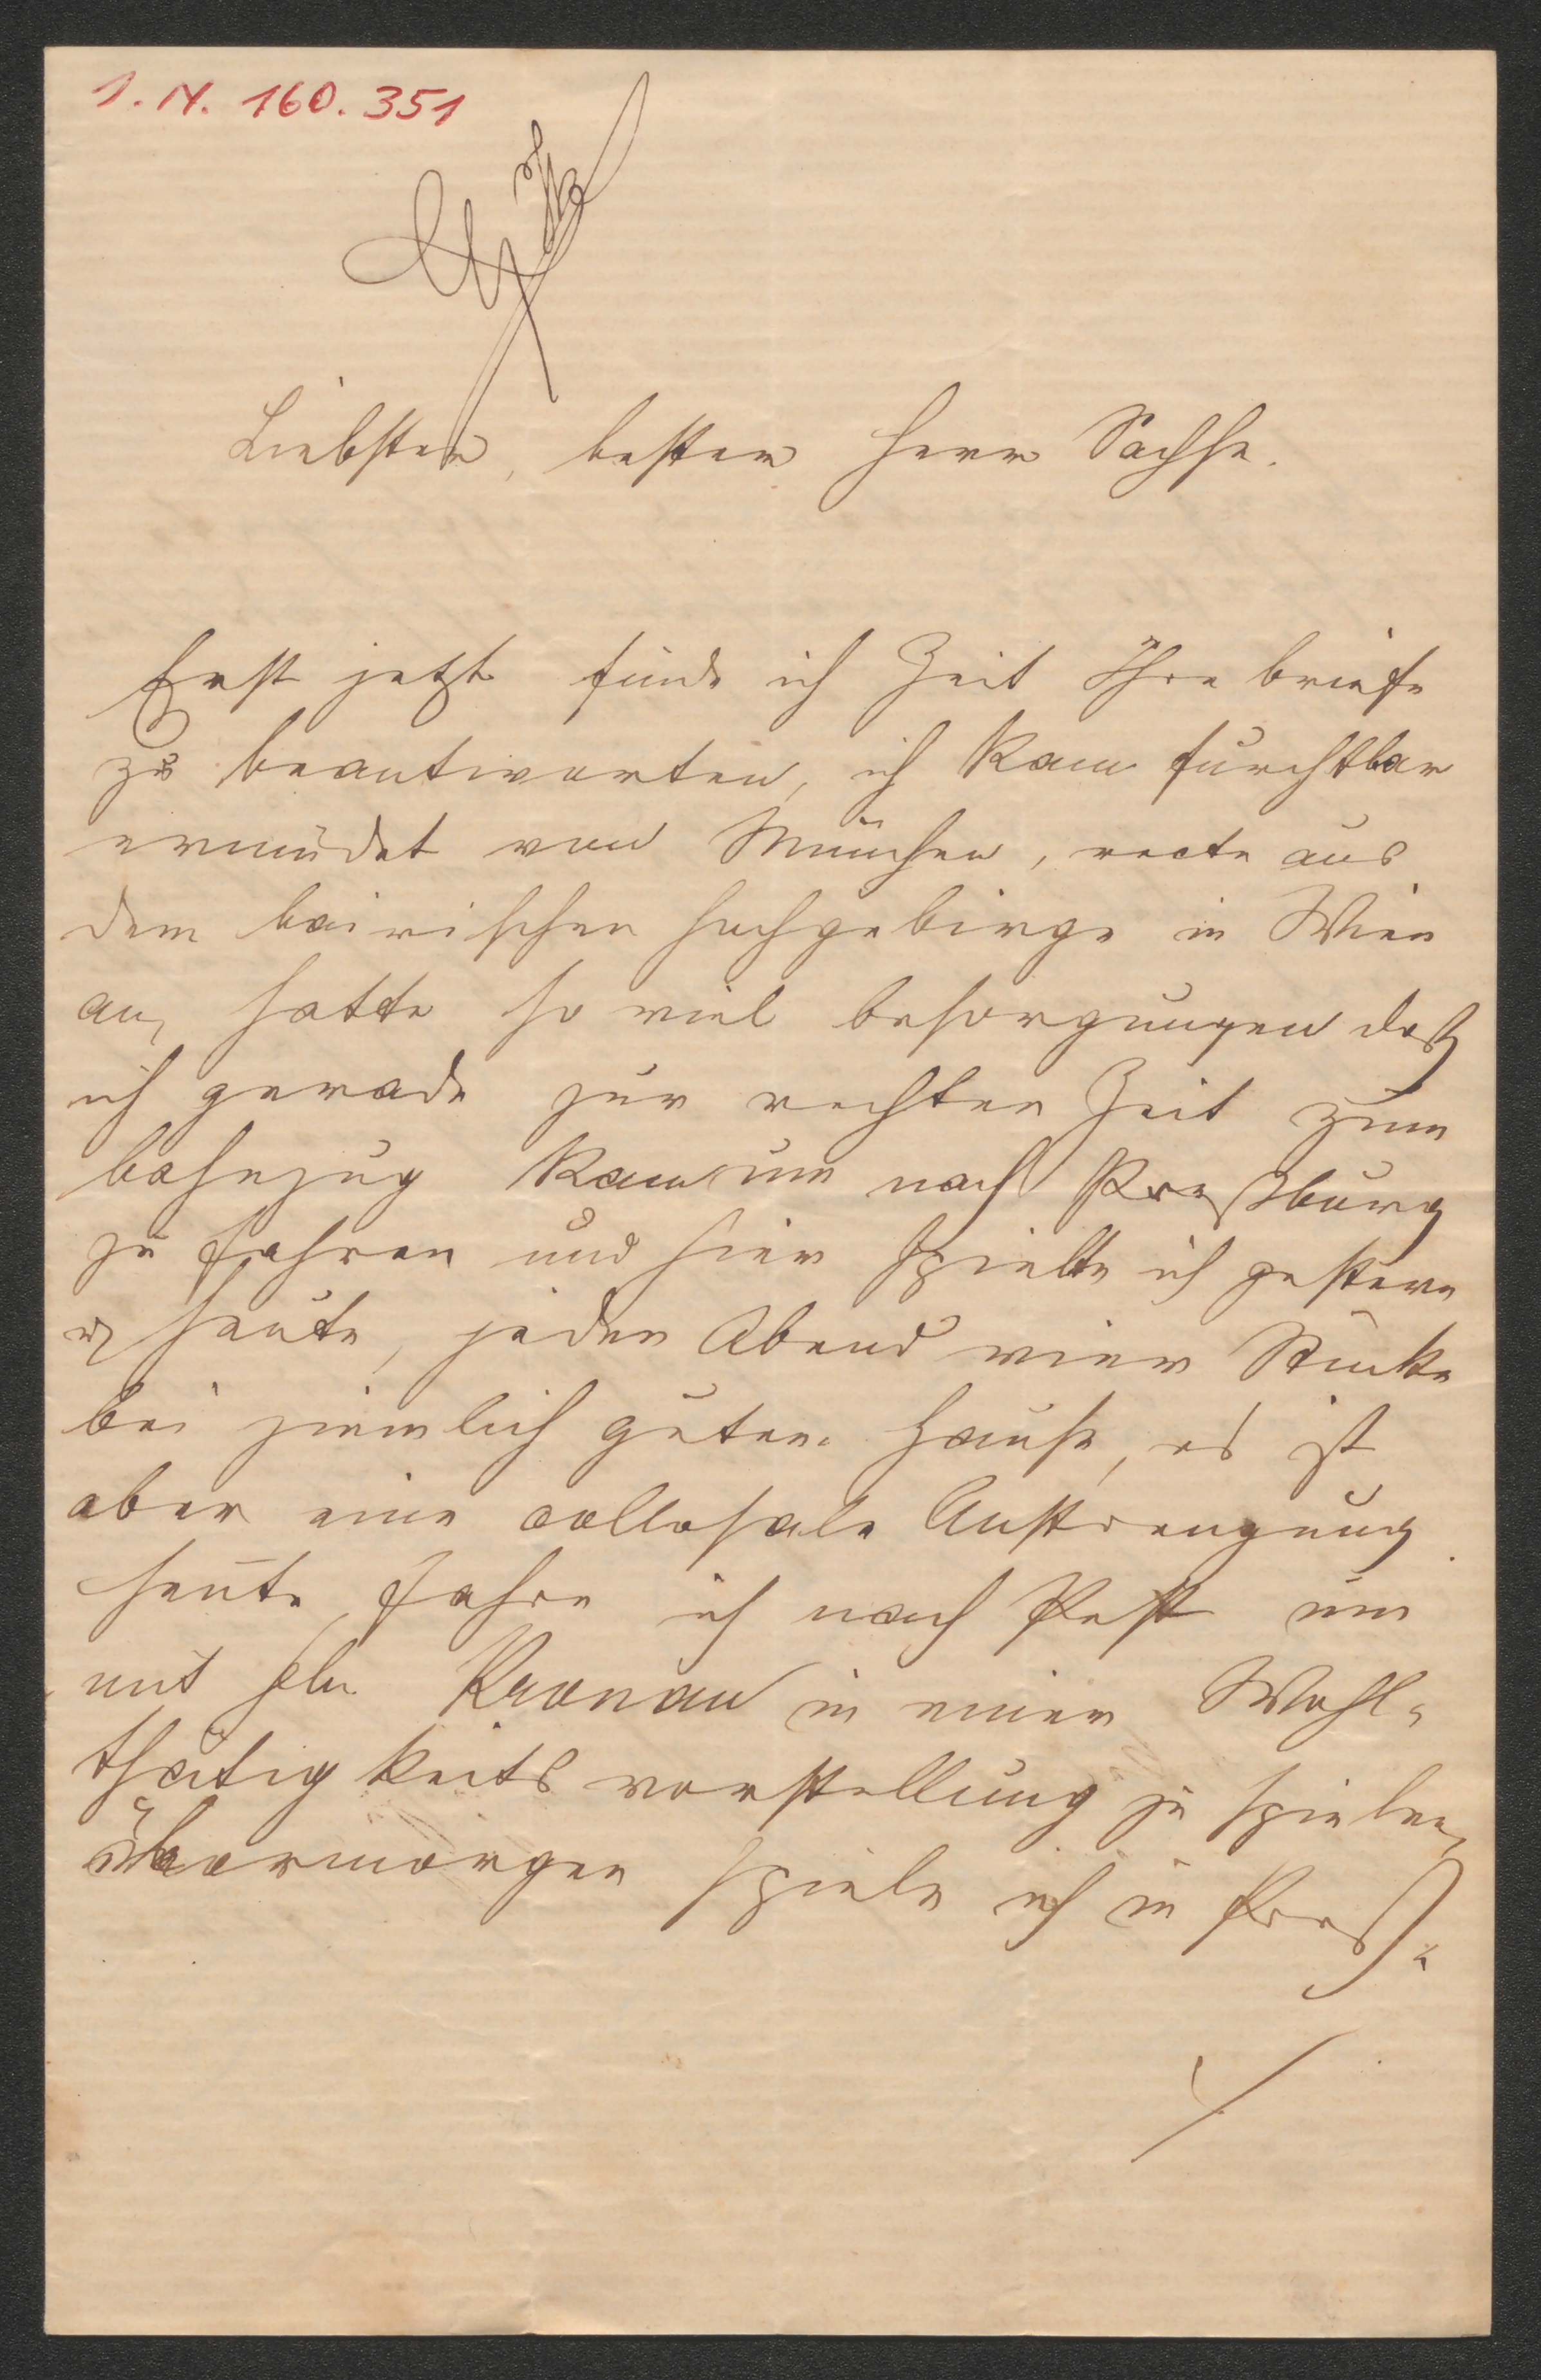 I. N. 160.351
Liebster, bester Herr Sachse.
Erst jetzt finde ich Zeit Ihre briefe
zu beantworten, ich kam furchtbar
ermüdet von München, recte aus
dem bairischen Hochgebirge in Wien
an, hatte so viel besorgungen daß
ich gerade zur rechten Zeit zum
bahnzug kam um nach Preßburg
zu fahren und hier spielte ich gestern
u heute, jeden Abend vier Stücke
bei ziemlich gutem Hause, es ist
aber eine collosale Anstrengung.
heute fahre ich nach Pest um
mit Frl. Kronau in einer Wohl-
thätigkeitsvorstellung zu spielen,
übermorgen spiele ich in Preß-